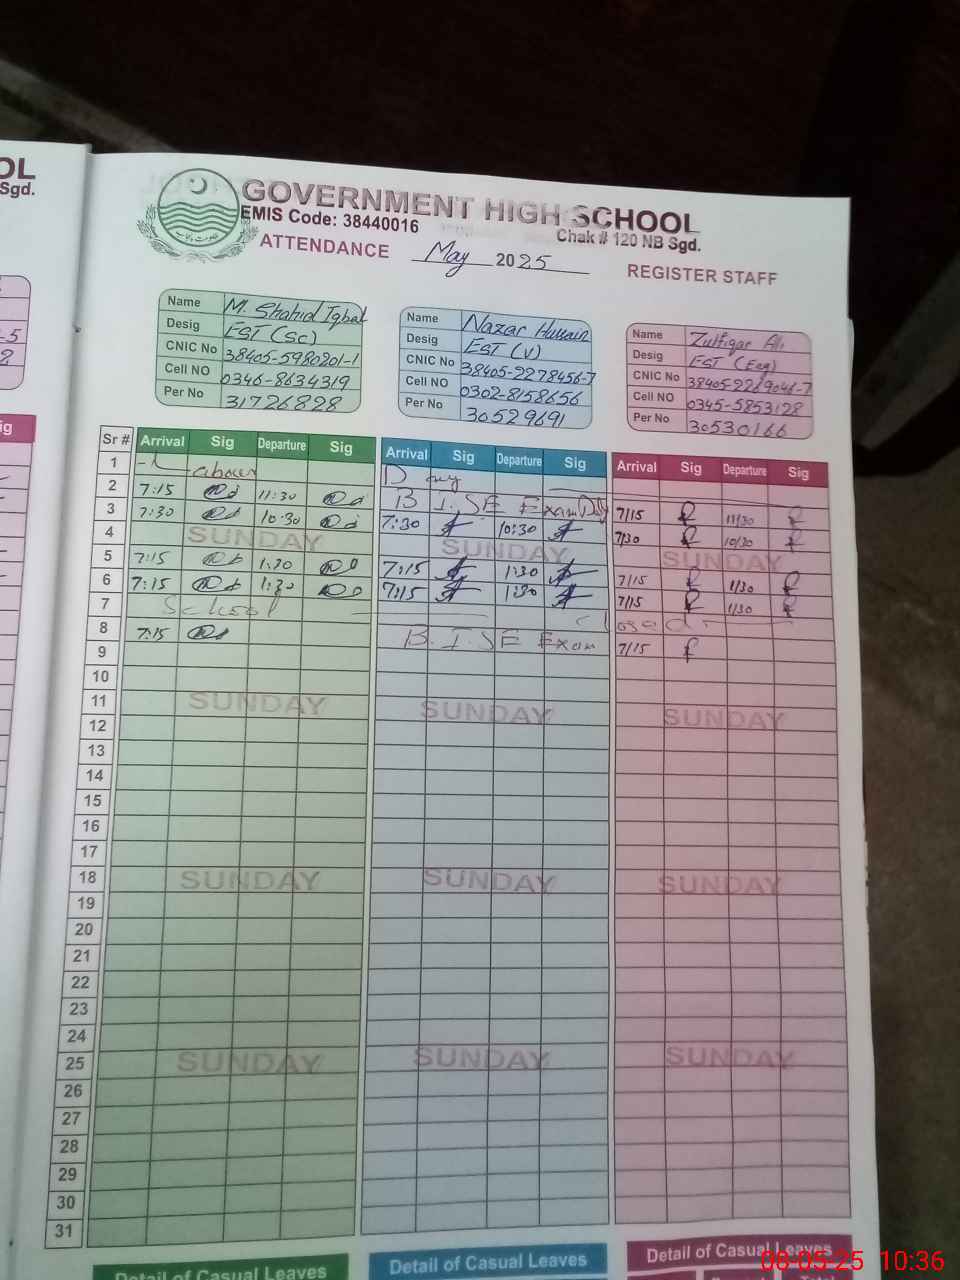 OL
Sgd.
GOVERNMENT HIGH SCHOOL
EMIS Code: 38440016
Chak # 120 NB Sgd.
ATTENDANCE May 2025 REGISTER STAFF
Name M. Shahid Iqbal
Desig EST (Sc)
CNIC No 38405-5980201-1
Cell NO 0346-8634319
Per No 31726828
Name Nazar Hussain
Desig EST (V)
CNIC No 38405-2278456-7
Cell NO 0302-8158656
Per No 30529691
Name Zulfiqar Ali
Desig EST (Eng)
CNIC No 38405-2269046-7
Cell NO 0345-5853128
Per No 30530166
ig
Sr # Arrival Sig Departure Sig Arrival Sig Departure Sig Arrival Sig Departure Sig
1 Labour Day
2 7:15 11:30 B.I.SE Exam Duty 7/15 11/30
3 7:30 10:30 7:30 10:30 7/30 10/30
4 SUNDAY SUNDAY SUNDAY
5 7:15 1:30 7:15 1:30 7/15 1/30
6 7:15 1:30 7:15 1:30 7/15 1/30
7 School closed.
8 7:15 B.I.SE Exam 7/15
9
10
11 SUNDAY SUNDAY SUNDAY
12
13
14
15
16
17
18 SUNDAY SUNDAY SUNDAY
19
20
21
22
23
24
25 SUNDAY SUNDAY SUNDAY
26
27
28
29
30
31
Detail of Casual Leaves Detail of Casual Leaves Detail of Casual Leaves
08-05-25 10:36